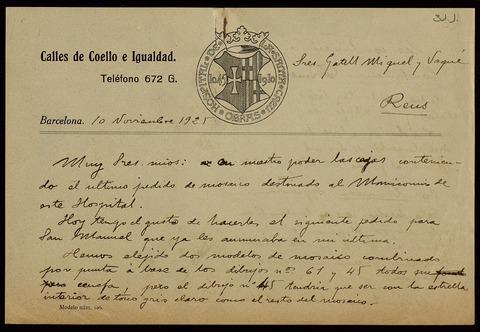 Calles de Coello e Igualdad.
Teléfono 672 G.
HOSPITAL DE LA SANTA CREU
OBRAS
Sres. Gatell Miquel y Vaqué
Reus
Barcelona, 10 Noviembre 1925
Muy Sres. mios: en nuestro poder las cajas contenien-
do el ultimo pedido de mosaico destinado al Manicomio de
este Hospital.
Hoy tengo el gusto de hacerles el siguiente pedido para
San Manuel que ya les anunciaba en mi última.
Hemos elejido dos modelos de mosaico combinado
por punta á base de los dibujos nº 61 y 45 todos
cenefa, pero el dibujo nº 45 tendria que ser con la estrella
interior de tono gris claro como el resto del mosaico.
Modelo núm. 106.